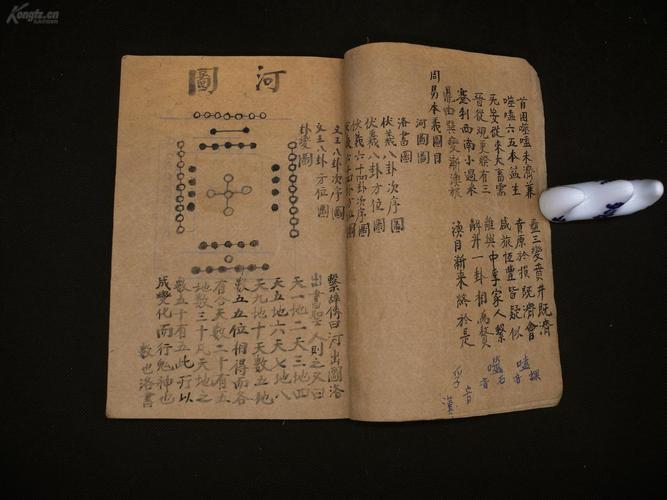 Kongfz.cn
首困噬嗑未濟兼 蠱三變賁井既濟
噬嗑六五本益生 賁原於損既濟會
无妄從來大畜需 咸旅恆豐皆疑似
晉從觀更睽有三 離與中孚家人繫
蹇利西南小過來 解升一卦相為贅
鼎由巽變漸渙旅 渙自漸來終於是
周易本義圖目
河圖圖
洛書圖
伏羲八卦次序圖
伏羲八卦方位圖
伏羲六十四卦次序圖
文王八卦次序圖
文王八卦方位圖
卦變圖
河圖
繫辭傳曰河出圖洛
出書聖人則之又曰
天一地二天三地四
天五地六天七地八
天九地十天數五地
數五五位相得而各
有合天數二十有五
地數三十凡天地之
數五十有五此所以
成變化而行鬼神也
數也洛書